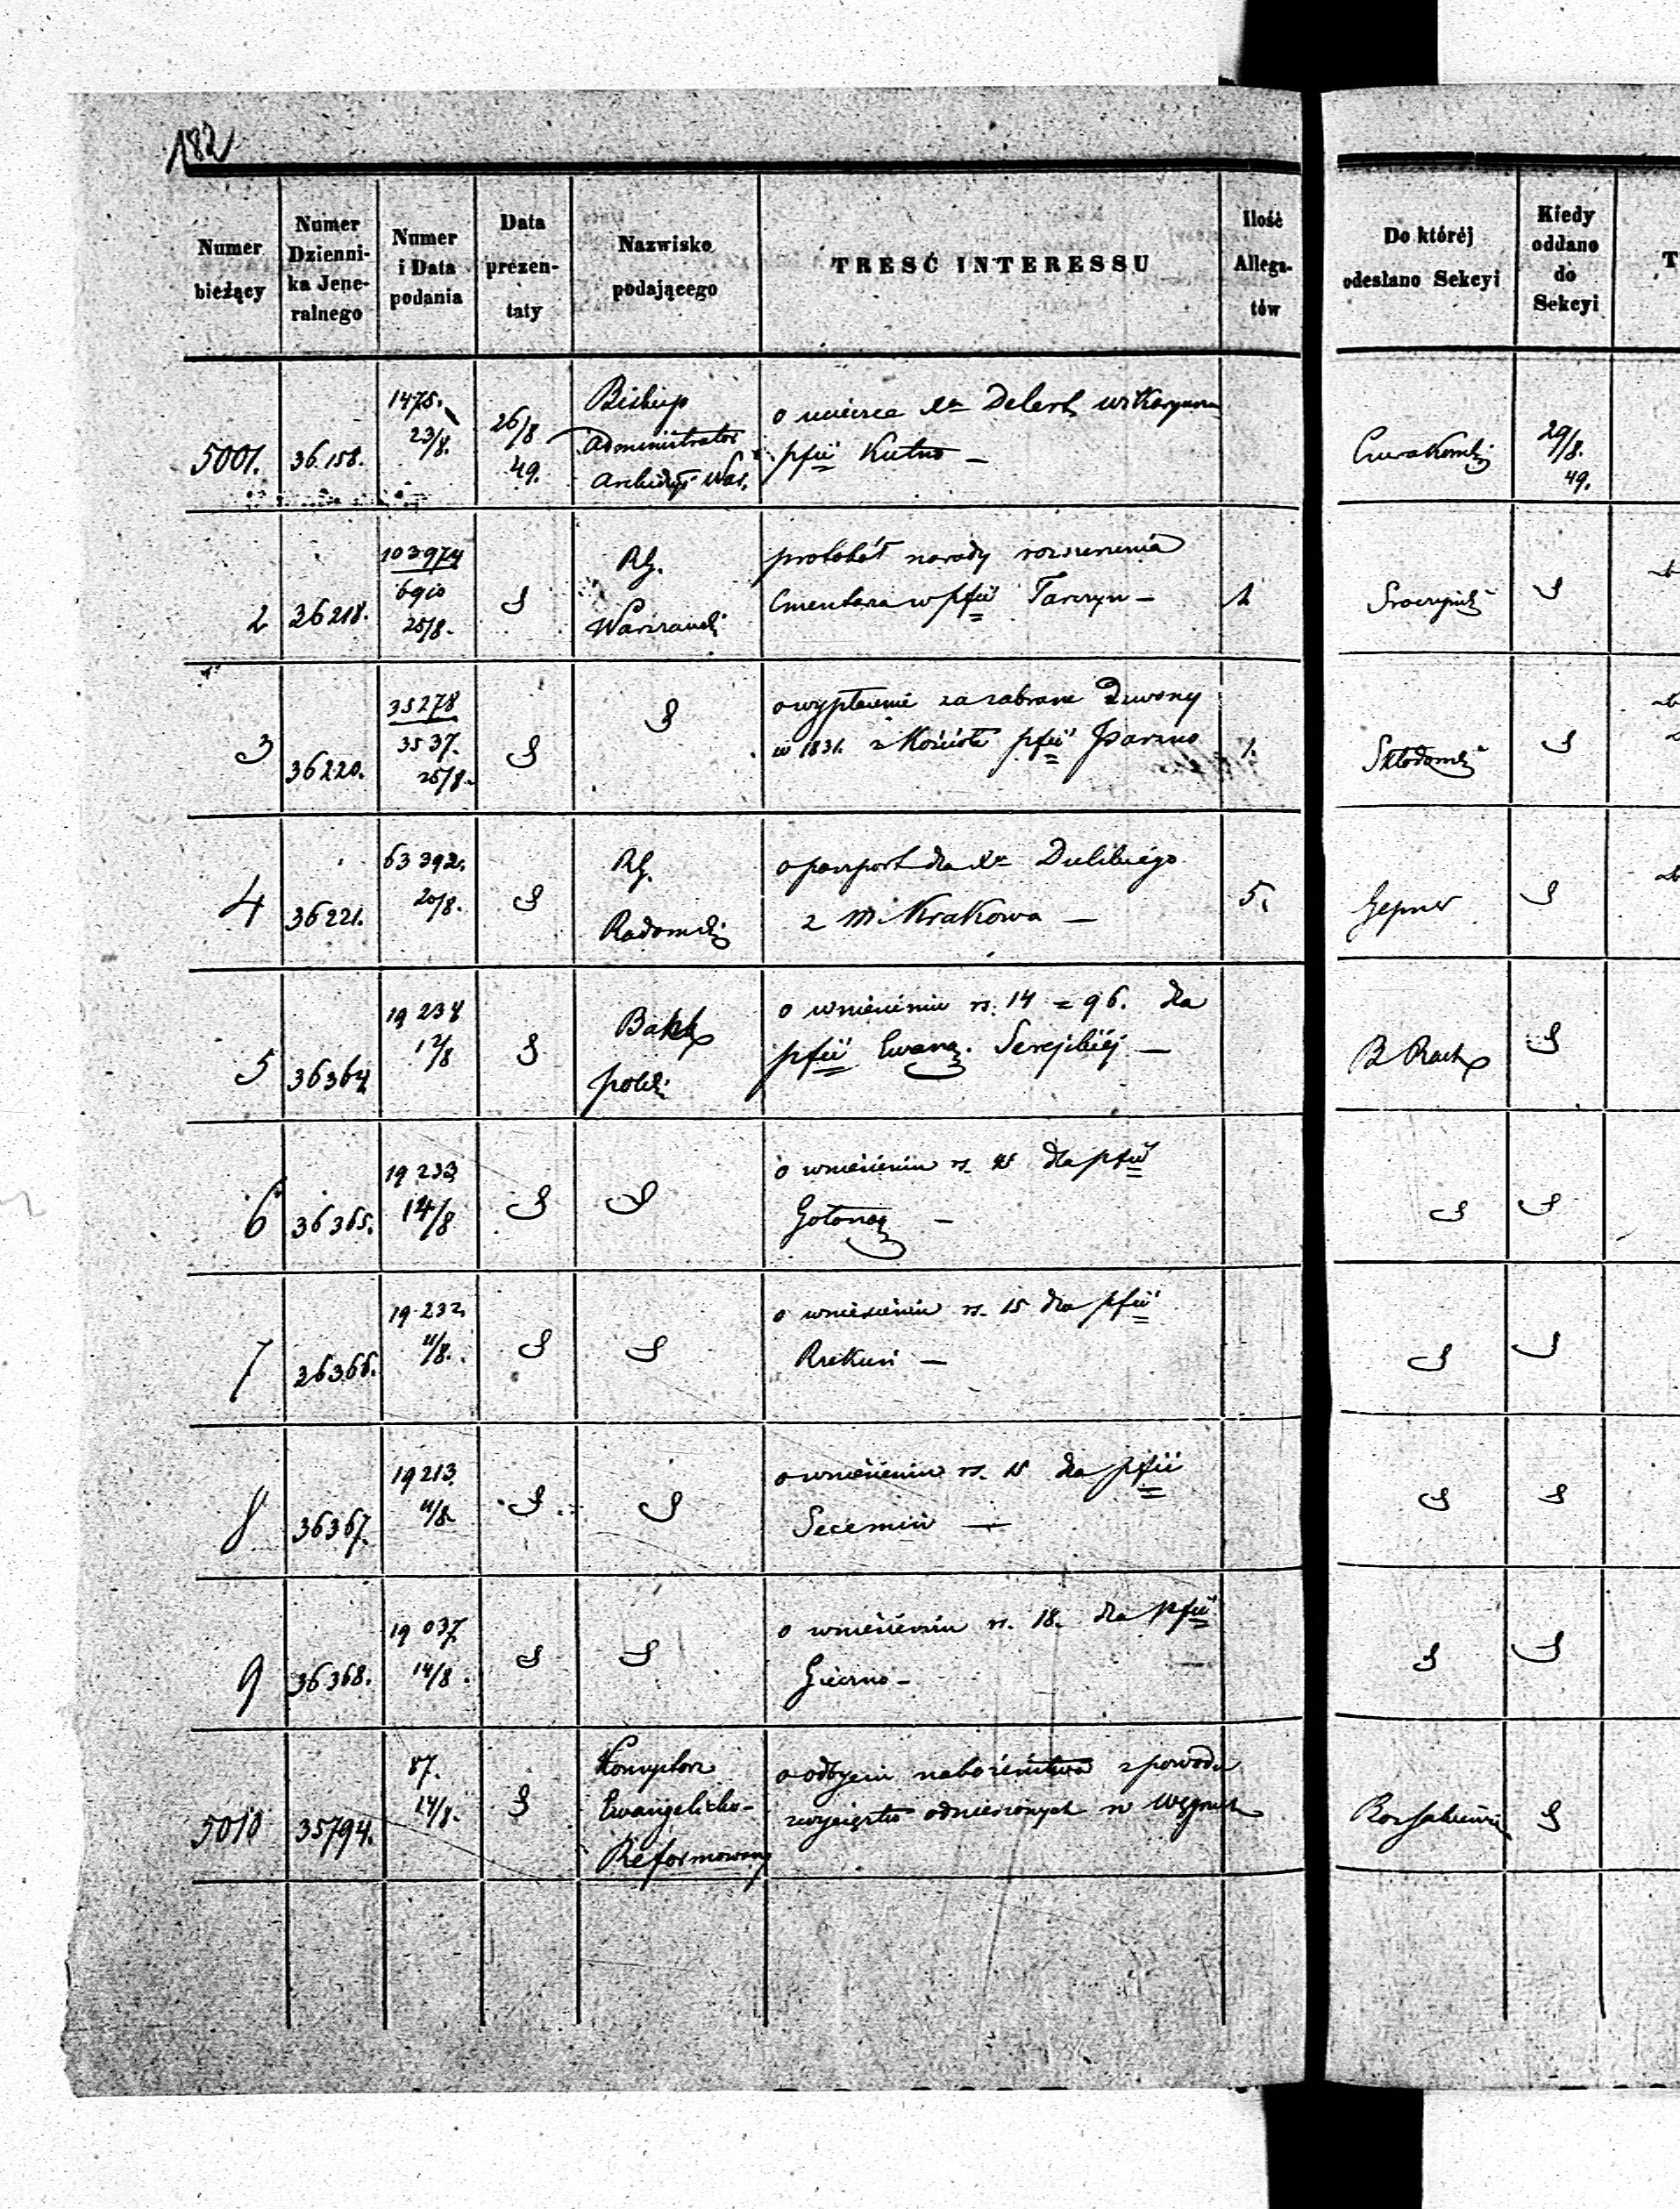 182
Numer bieżący
Numer Dzienni-ka Jene-ralnego
Numer i Data podania
Data prezen-taty
Nazwisko podającego
TRESĆ INTERESSU
Ilość Allega-tów
Do któréj odesłano Sekcyi
Kiedy oddano do Sekcyi
T
5001. 36.158. 1475. 23/8. 26/8 49.
Biskup
Administrator
Archidye War.
o umieszc Xa Delert
pfii Kutno —
29/8. 49.
2 36218. 103974 6910 25/8. S
RG.
Warszawski
protokół narady rozszerzenia
Cmentarza w pfii Tarczyn — 1
S
3 36220. 35278 3537. 25/8. S
S
o wypłacenie za zabrane Dzwony
w 1831. z Kościoła pfii Parzno 1.
Skłodowski S
4 36221. 63392. 20/8. S
RG.
Radomski
o paszport dla Xa
z M. Krakowa — 5.
Gepner S
5 36364 19234 12/8 S
Bank
polski
o wniesieniu rs. 14 = 96. dla
pfii Ewang. Serejskiéj —
S
6 36365. 19233 14/8 S S
o wniesieniu rs. dla pfii
S S
7 36366. 19232 11/8. S S
o wniesieniu rs. 15 dla pfii
Rzekuń —
S S
8 36367. 19213 11/8 S S
o wniesieniu rs. 15 dla pfii
Secemin —
S S
9 36368. 19037 14/8. S S
o wniesieniu rs. 18. dla pfii
S S
5010 35794. 87. 24/8. S
Konsystorz
Ewangelicko-
Reformowany
o odbyciu nabożeństwa z powodu
zwycięztw odniesionych w Węgrzech
S